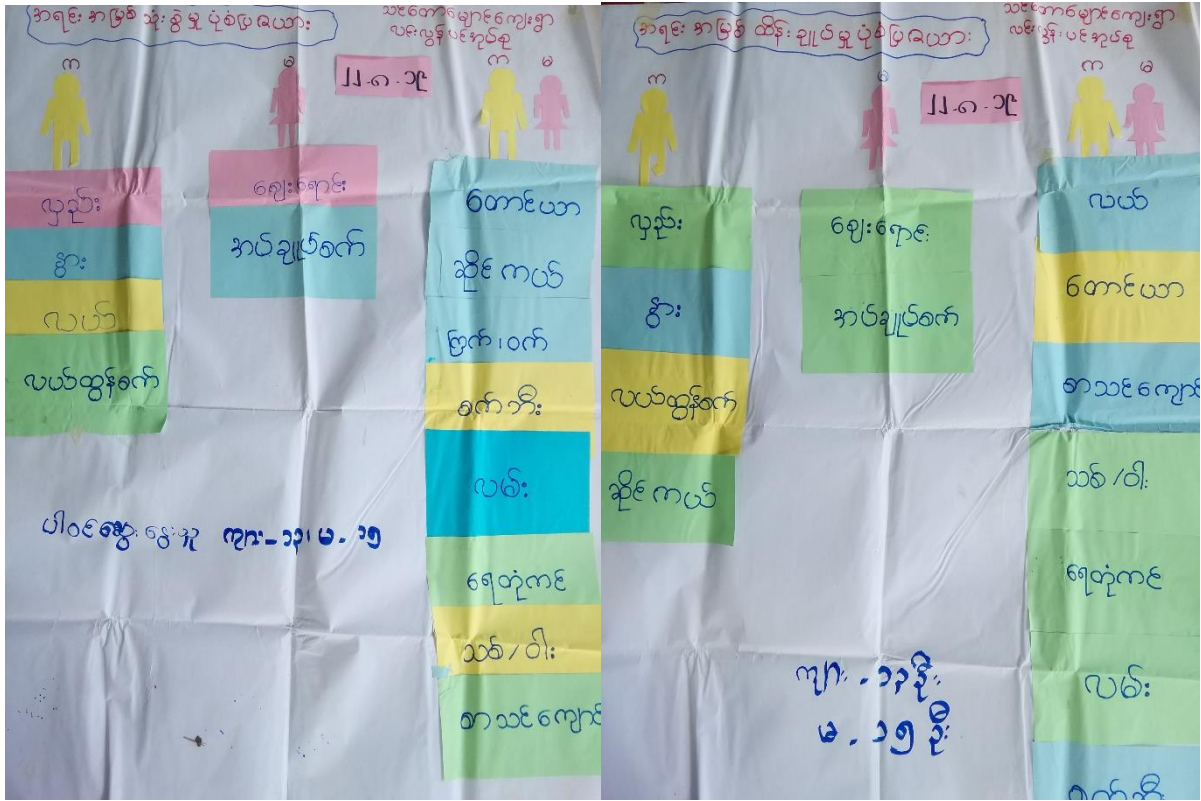 အရင်းအမြစ် သုံးစွဲမှု ပုံစံပြဇယား
သင်တောမျောင်ကျေးရွာ
လင်းလွန်ပင်အုပ်စု
က
မ
၂၂.၈.၁၉
က
မ
လှည်း
နွား
လယ်
လယ်ထွန်စက်
ဈေးရောင်း
အပ်ချုပ်စက်
တောင်ယာ
ဆိုင်ကယ်
ကြက်၊ဝက်
စက်ဘီး
လမ်း
ရေတုံကင်
သစ်/ဝါး
စာသင်ကျောင်
ပါဝင်ဆွေးနွေးသူ ကျား-၁၃၊ မ-၁၅
အရင်းအမြစ် ထိန်းချုပ်မှု ပုံစံပြဇယား
သင်တောမျောင်ကျေးရွာ
လင်းလွန်းပင်အုပ်စု
က
မ
၂၂.၈.၁၉
က
မ
လှည်း
နွား
လယ်ထွန်စက်
ဆိုင်ကယ်
ဈေးရောင်း
အပ်ချုပ်စက်
လယ်
တောင်ယာ
စာသင်ကျောင်
သစ်/ဝါး
ရေတုံကင်
လမ်း
စက်ဘီး
ကျား - ၁၃ဦး
မ - ၁၅ ဦး